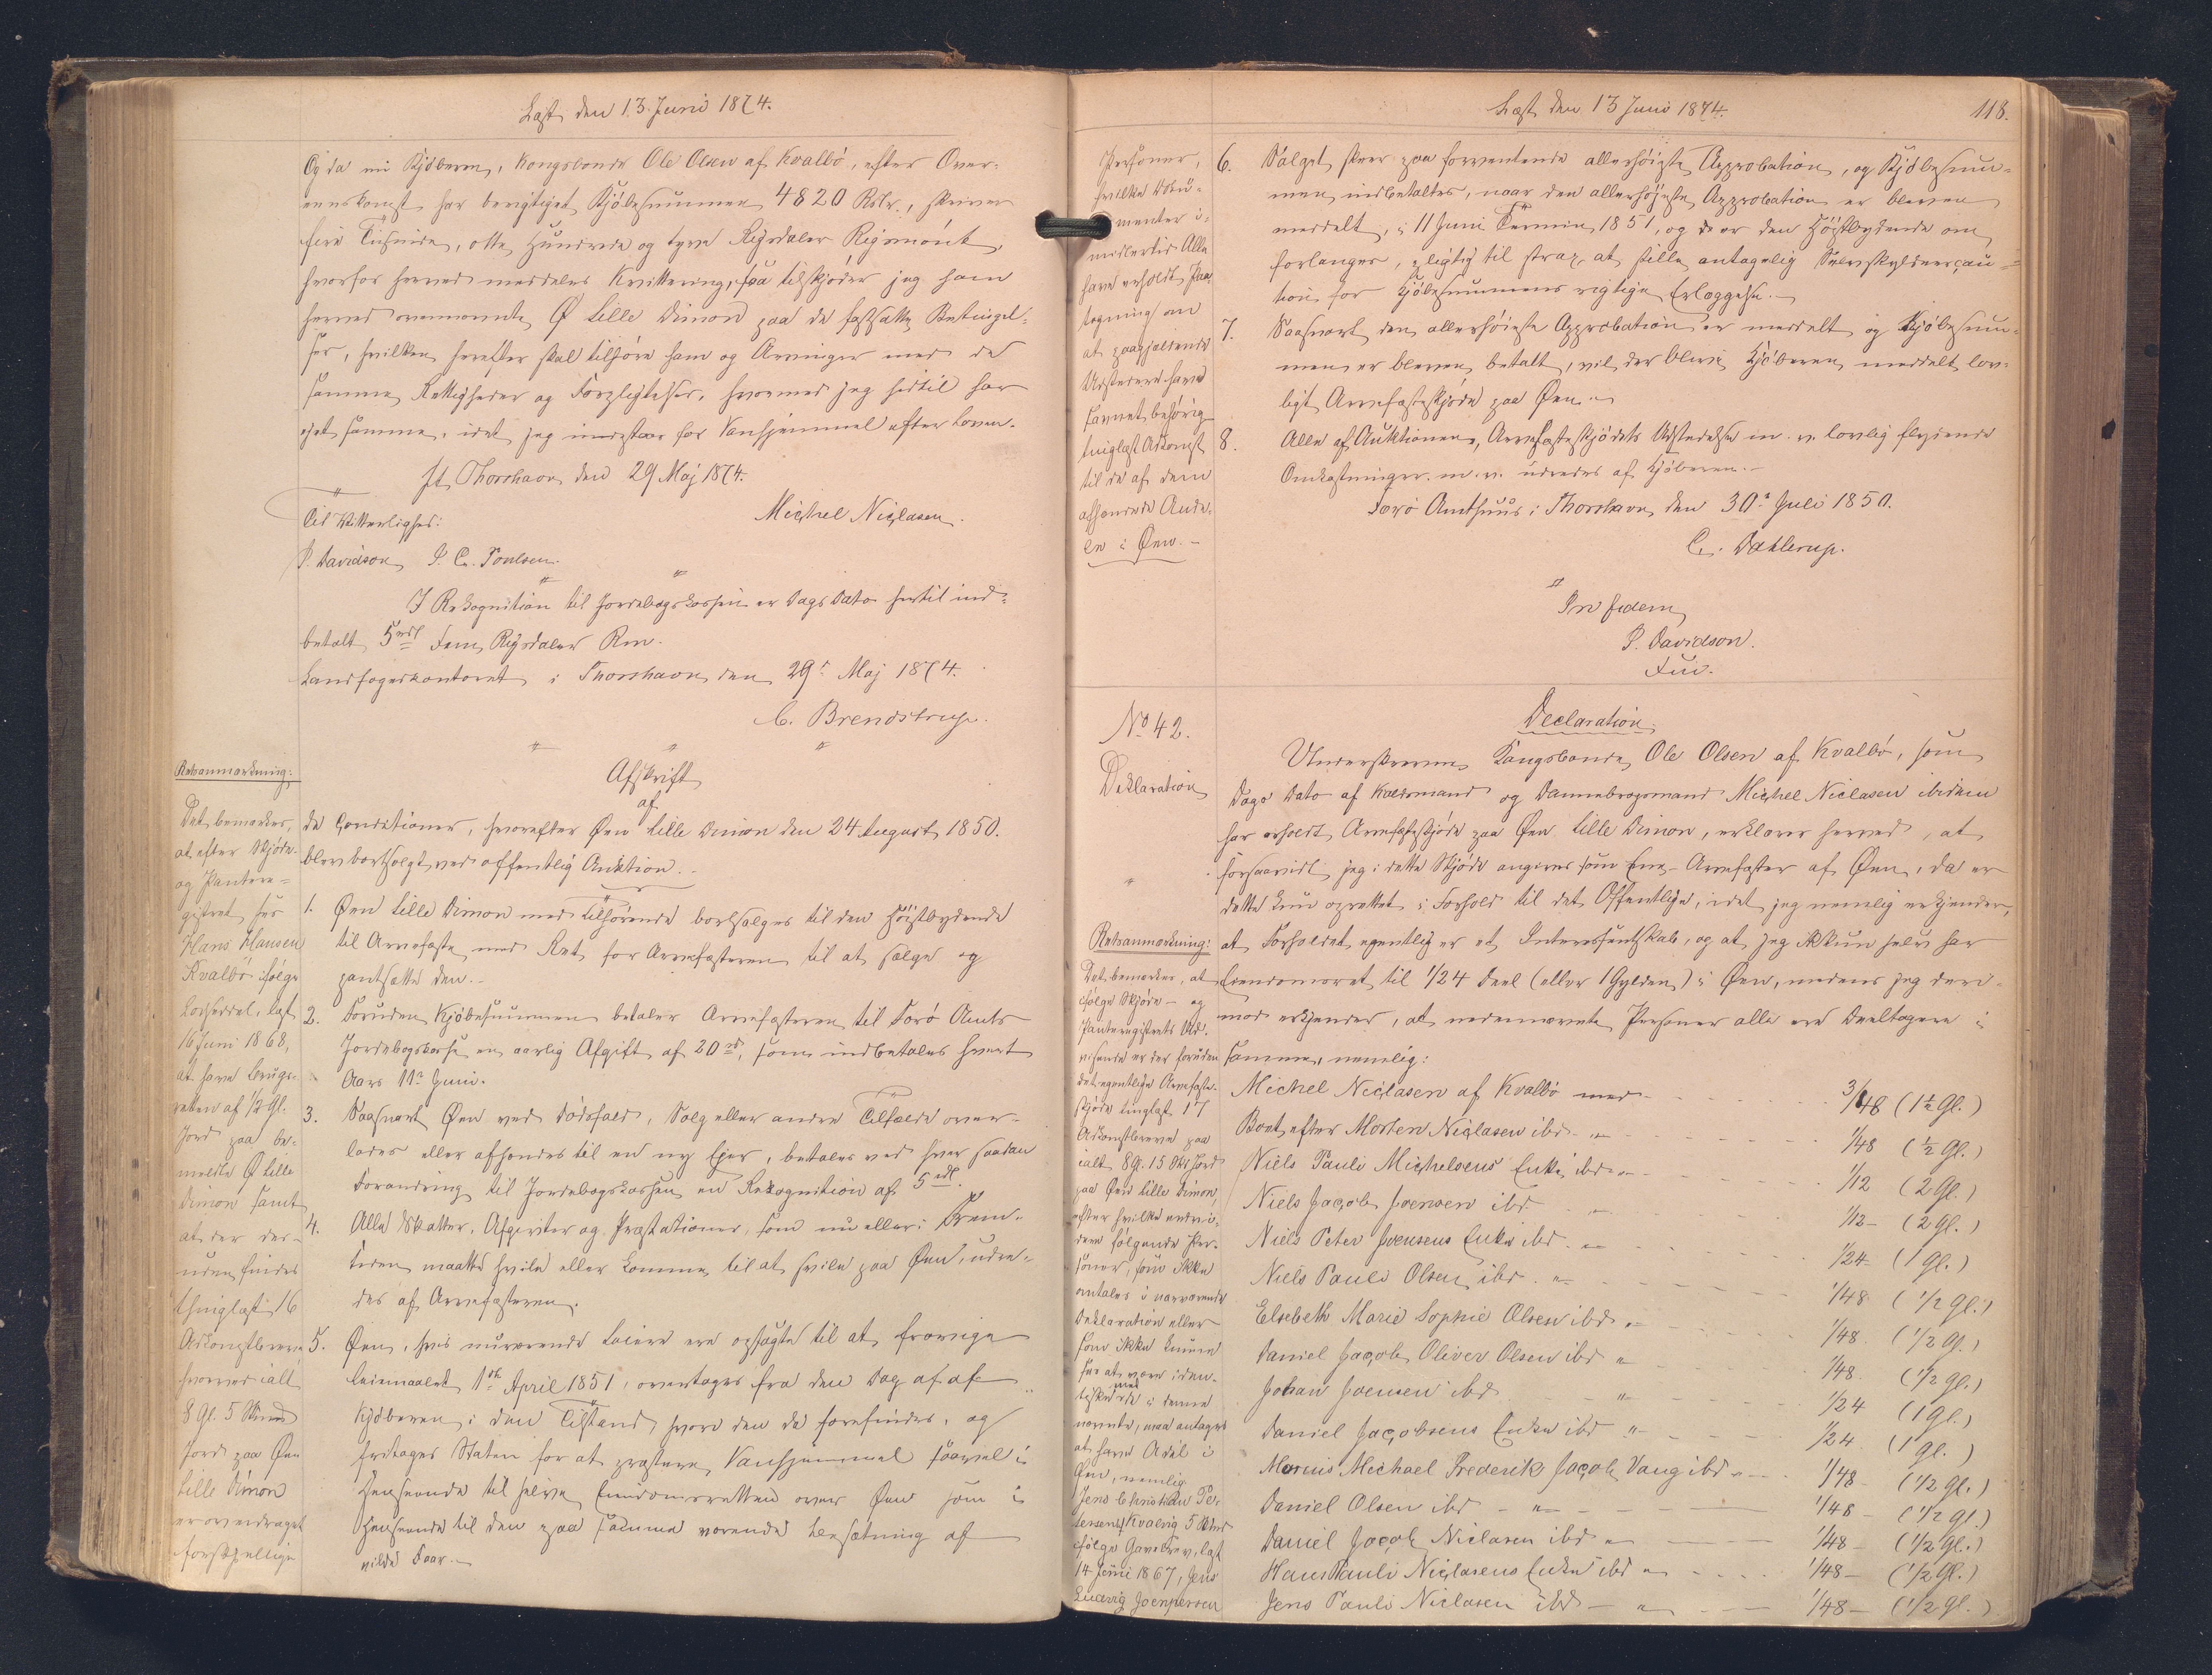 Læst den 13 Juni 1874.
Og da nu Kjøberen, Kongsbonde Ole Olsen af Kvalbø, efter Over-
eenskomst har berigtiget Kjøbesummen 4820 Rdlr., skriver
fire Tusinde, otte Hundrede og tyve Rigsdaler Rigsmønt,
hvorfor herved meddeles Kvittering, saa tilskjøder jeg ham
herved ovennævnte Ø Lille Dimon paa de fastsatte Betingel-
ser, hvilken herefter skal tilhøre ham og Arvinger med de
samme Rettigheder og Forpligtelser, hvormed jeg hidtil har
ejet samme, idet jeg indestaar for Vanhjemmel efter Loven.
pt. Thorshavn den 29 Maj 1874.
Michel Niclasen.
Til Vitterlighed:
P. Davidson J. C. Poulsen.
I Rekognition til Jordebogskassen er Dags Dato hertil ind-
betalt 5 rdl fem Rigsdaler Rm.
Landfogedkontoret i Thorshavn den 29 Maj 1874.
C. Brendstrup.
Afskrift
af
de Conditioner, hvorefter Øen Lille Dimon den 24 August 1850.
blev bortsolgt ved offentlig Auktion.
1. Øen Lille Dimon med Tilhørende bortsælges til den Høistbydende
til Arvefæste med Ret for Arvefæsteren til at sælge og
pantsætte den.
2. Foruden Kjøbesummen betaler Arvefæsteren til Færø Amts
Jordebogskasse en aarlig Afgift af 20 rd, som indbetales hvert
Aars 11 Juni.
3. Saasnart Øen ved Dødsfald, Salg eller andre Tilfælde over-
lades eller afhændes til en ny Ejer, betales ved hver saadan
Forandring til Jordebogskassen en Rekognition af 5 rdl.
4. Alle Skatter, Afgivter og Præstationer, som nu eller i Frem-
tiden maatte hvile eller komme til at hvile paa Øen, udre-
des af Arvefæsteren.
5. Øen, hvis nuværende Leiere ere opsagte til at fravige
Leiemaalet 1 April 1851, overtages fra den Dag af af
Kjøberen i den Tilstand hvori den da forefindes, og
fritages Staten for at præstere Vanhjemmel saavel i
Henseende til selve Eiendomsretten over Øen som i
Henseende til den paa samme værende Besætning af
vilde Faar.
Retsanmærkning:
Det bemærkes,
at efter Skjøde-
og Pantere-
gistret har
Hans Hansen
Kvalbø ifølge
Lodseddel, læst
16 Juni 1868,
at have Brugs-
retten af 1/2 Gl.
Jord paa be-
meldte Ø Lille
Dimon samt
at der des-
uden findes
thinglæst 16
Adkomstbreve
hvorved ialt
8 Gl. 5 Skind
Jord paa Øen
Lille Dimon
er overdraget
forskjellige
Læst den 13 Juni 1874.
118.
Personer,
hvilke Doku-
menter i-
midlertid Alle
have erholdt Paa-
tegning om
at paagjældende
Udstedere have
savnet behørig
tinglæst Adkomst
til de af dem
afhændede Ande-
le i Øen.
6. Salget skeer paa forventende allerhøieste Approbation, og Kjøbesum-
men indbetales, naar den allerhøjeste Approbation er bleven
meddelt, i 11 Juni Termin 1851, og er den Høistbydende om
forlanges, pligtig til strax at stille antagelig Selvskyldnercau-
tion for Kjøbesummens rigtige Erlæggelse.
7. Saasnart den allerhøieste Approbation er meddelt og Kjøbesum-
men er bleven betalt, vil der blive Kjøberen meddelt lov-
ligt Arvefæsteskjøde paa Øen.
8. Alle af Auktionen, Arvefæsteskjødets Udstedelse m. v. lovlig flydende
Omkostninger m. v. udredes af Kjøberen.
Færø Amthuus i Thorshavn den 30 Juli 1850.
C. Dahlerup.
Pro fidem
P. Davidson.
Fuv.
No 42.
Deklaration
Declaration.
Underskrevne Kongsbonde Ole Olsen af Kvalbø, som
Dags Dato af Kaldsmand og Dannebrogsmand Michel Niclasen ibidem
har erholdt Arvefæsteskjøde paa Øen Lille Dimon, erklærer herved, at
forsaavidt jeg i dette Skjøde angives som Ene-Arvefæster af Øen, da er
dette kun oprettet i Forhold til det Offentlige, idet jeg nemlig erkjender,
at Forholdet egentlig er et Interessentskab, og at jeg ikkun selv har
Eiendomsret til 1/24 Deel (eller 1 Gylden) i Øen, medens jeg deri-
mod erkjender, at nedennævnte Personer alle ere Deeltagere i
samme, nemlig:
Michel Niclasen af Kvalbø med 3/48 (1½ Gl.)
Boet efter Morten Niclasen ibd. " 1/48 (½ Gl.)
Niels Pauli Michelsens Enke ibd " 1/12 (2 Gl.)
Niels Jacob Joensen ibd " 1/12 (2 gl.)
Niels Peter Joensens Enke ibd. " 1/24 (1 gl.)
Niels Pauli Olsen ibd. " 1/48 (1/2 gl.)
Elsebeth Marie Sophie Olsen ibd. " 1/48 (1/2 Gl.)
Daniel Jacob Oliver Olsen ibd " 1/48 (1/2 gl.)
Johan Joensen ibd " 1/24 (1 gl.)
Daniel Jacobsens Enke ibd " 1/24 (1 gl.)
Mornis Michael Frederik Jacob Vang ibd " 1/48 (1/2 gl.)
Daniel Olsen ibd " 1/48 (1/2 gl.)
Daniel Jacob Niclasen ibd " 1/48 (1/2 gl.)
Hans Pauli Niclasens Enke ibd " 1/48 (1/2 Gl.)
Jens Pauli Niclasen ibd " 1/48 (1/2 gl.)
Retsanmærkning:
Det bemærkes, at
ifølge Skjøde- og
Panteregistrets Ud-
visende er der foruden
det egentlige Arvefæste-
skjøde tinglæst 17
Adkomstbreve paa
ialt 8 Gl. 15 Skd Jord
paa Øen Lille Dimon,
efter hvilke endvi-
dere følgende Per-
soner, som ikke
omtales i nærværende
Deklaration eller
som ikke kunne
sees at være iden-
tiske med de i denne
nævnte, maa antages
at have Adel i
Øen, nemlig
Jens Christian Pe-
tersen af Kvalvig 5 Skind
ifølge Gavebrev, læst
14 Juni 1867, Jens
Ludvig Joenpersen